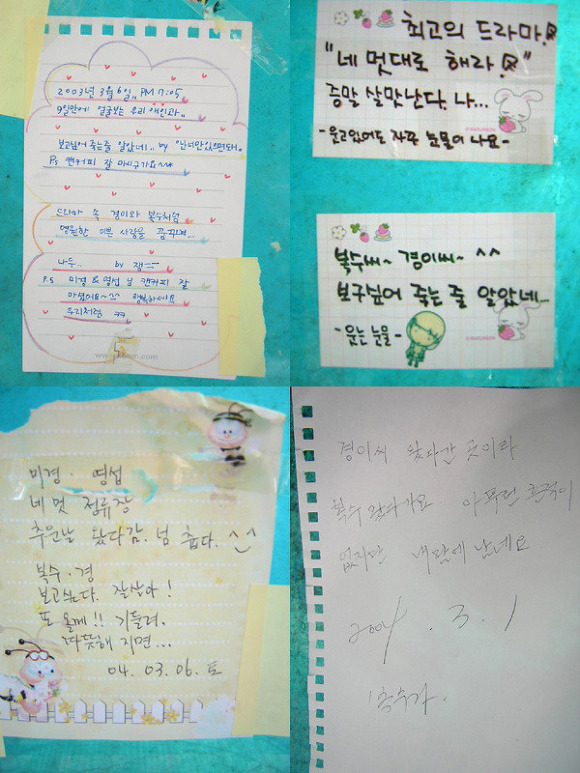 2003년 3월 6일.. PM 7:05.
9일만에 얼굴보는 우리 애인과..
보고싶어 죽는 줄 알았네.. by 난너만있으면돼.
P.s 캔커피 잘 마시구가요~^^
드라마 속 경이와 복수처럼
영원한 예쁜 사랑을 꿈꾸며..
나두.. by 잼
P.s 미경 & 영섭 님 캔커피 잘
마셨어요~^^ 행복하세요
우리처럼 ㅋㅋ
최고의 드라마!
"네 멋대로 해라!"
증말 살맛난다. 나...
-웃고있어도 자꾸 눈물이 나요-
복수씨~ 경이씨~ ^^
보구싶어 죽는 줄 알았네...
-웃는 눈물-
미경. 영섭
네 멋 정류장
추운날 왔다감. 넘 춥다. ^^
복수. 경
보고싶다. 잘살아!
또 올께!! 기둘려.
따뜻해 지면...
04. 03. 06. 토
경이씨 왔다간 곳이라
복수 왔다가요. 아무런 흔적이
없지만 내맘에 남네요.
2004. 3. 1
복수가.